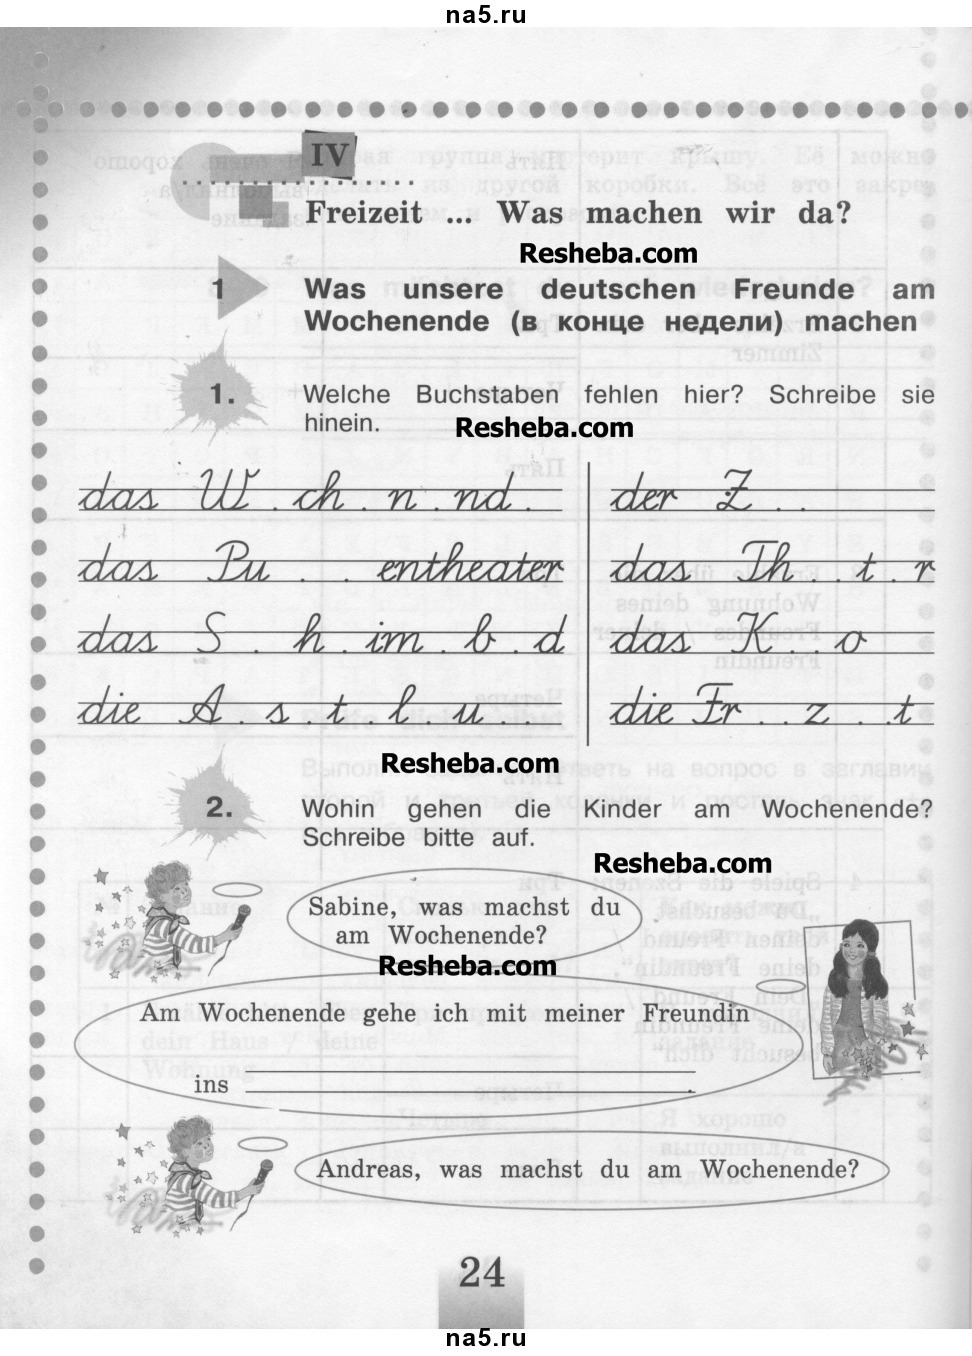 na5.ru
IV
Freizeit ... Was machen wir da?
Resheba.com
1
Was unsere deutschen Freunde am
Wochenende (в конце недели) machen
1.
Welche Buchstaben fehlen hier? Schreibe sie
hinein.
Resheba.com
das W . ch . n . nd .
der Z . .
das Pu . . entheater
das Th . . t . r
das S . h . im . b . d
das K . . o
die A . s t . l . u .
die Fr . . z . . t
Resheba.com
2.
Wohin gehen die Kinder am Wochenende?
Schreibe bitte auf.
Resheba.com
Sabine, was machst du
am Wochenende?
Resheba.com
Am Wochenende gehe ich mit meiner Freundin
ins .
Andreas, was machst du am Wochenende?
24
na5.ru